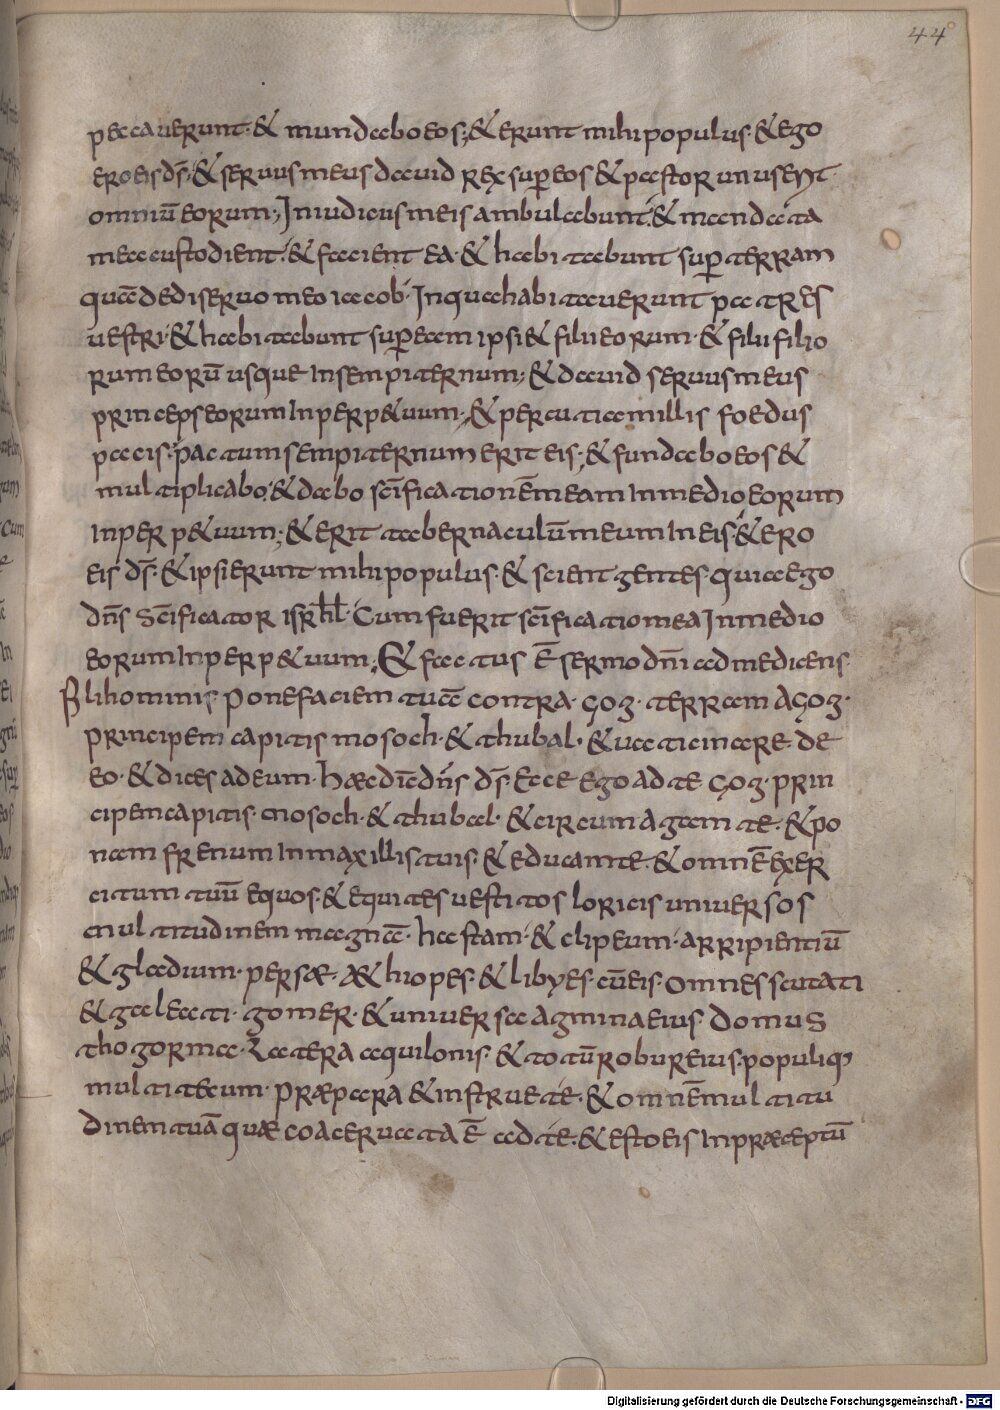 44
peccaverunt· & mundabo eos; & erunt mihi populus· & ego
ero eis d̄s· & servus meus david rex sup̄ eos & pastor unus erit
omniū eorum; In iudiciis meis ambulabunt· & mandata
mea custodient· & facient ea· & habitabunt sup̄ terram
quā dedi servo meo iacob· In qua habitaverunt patres
vestri· & habitabunt sup̄ eam ipsi & filii eorum· & filii filio
rum eorū usque in sempiternum; & david servus meus
princeps eorum in perp&uum; & percutiam illis foedus
pacis· pactum sempiternum erit eis; & fundabo eos &
multiplicabo; & dabo sc̄ificationēm eam in medio eorum
in perp&uum; & erit tabernaculū meum in eis· & ero
eis d̄s· & ipsi erunt mihi populus· & scient gentes· quia ego
dn̄s sc̄ificator isrhl· Cum fuerit sc̄ificatio mea In medio
eorum in perp&uum; & factus ē sermo dn̄i ad me dicens·
Fili hominis pone faciem tuā contra· gog· terram Agog·
principem capitis mosoch· & thubal· & vaticinare de
eo· & dices ad eum· hæc dic̄ dn̄s d̄s· Ecce ego ad te gog· prin
cipem capitis· mosoch· & thubal· & circum agam te· & po
nam frenum in maxillis tuis· & educam te· & omnē exer
citum tuū equos· & equites vestitos loricis universos
multitudinem magnā· hastam· & clipeum· arripientiū
& gladium· persæ· æthiopes· & libyes· cū eis· omnes scutati
& galeati· gomer· & universa agmina eius· domus
thogorma· latera aquilonis· & totū robur eius· populiq;
multi tecum· præpara & instrue te· & omnē multitu
dinem tuā quæ coacervata ē ad te· & esto eis in præceptū
Digitalisierung gefördert durch die Deutsche Forschungsgemeinschaft - DFG